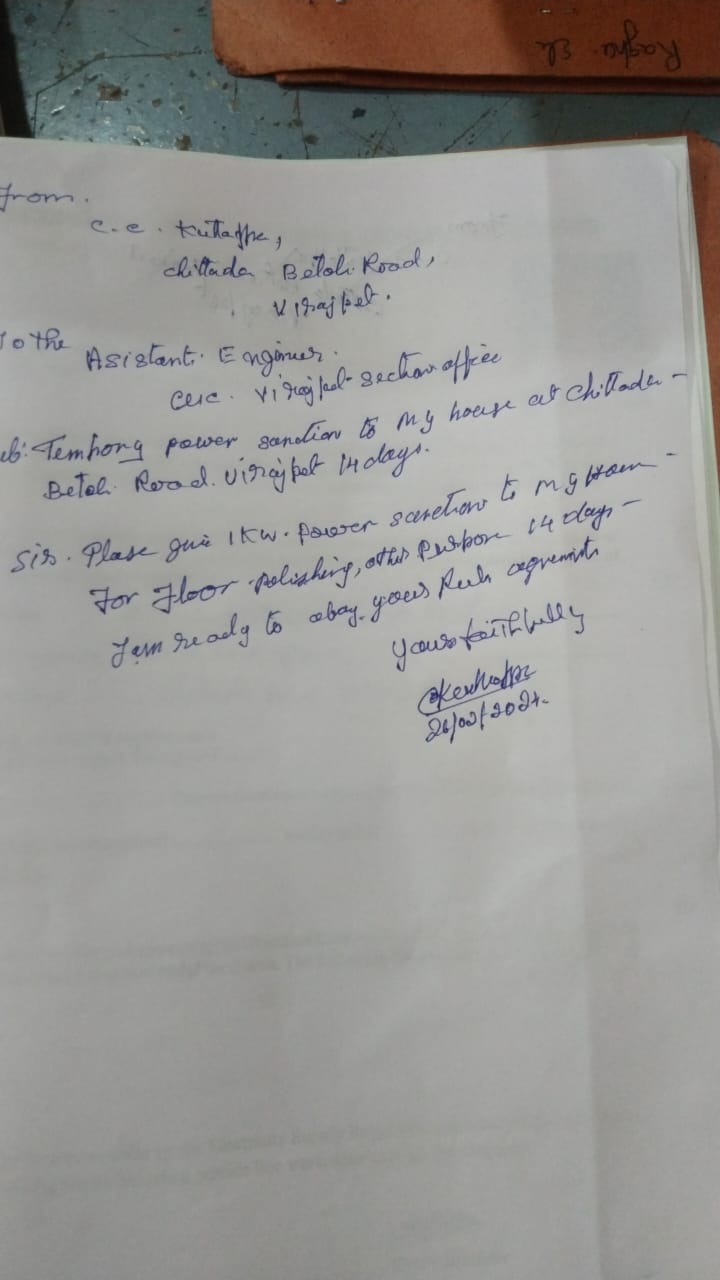 Raghu. Ele
From.
C. C. Kuttappa,
Chittada Betoli Road,
Virajpet.
To the
Asistant. Engineer.
cesc. Virajpet section office
Sub: Temporry power sanction to My house at Chittada -
Betoli Road. Virajpet 14 days.
Sir. Plase give 1 KW. power sanction to My Hom -
For Floor polishing, other Purpose 14 days -
I am ready to obay. yours Ruls agrements
Yours faithfully
26/02/2024.